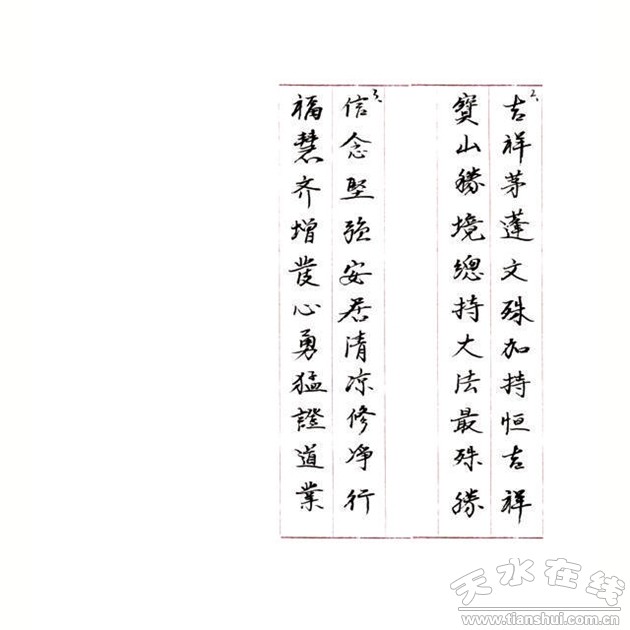 2、吉祥茅蓬文殊加持恒吉祥
寶山勝境總持大法最殊勝
3、信念堅强安居清凉修净行
福慧齐增發心勇猛證道業
天水在线
www.tianshui.com.cn